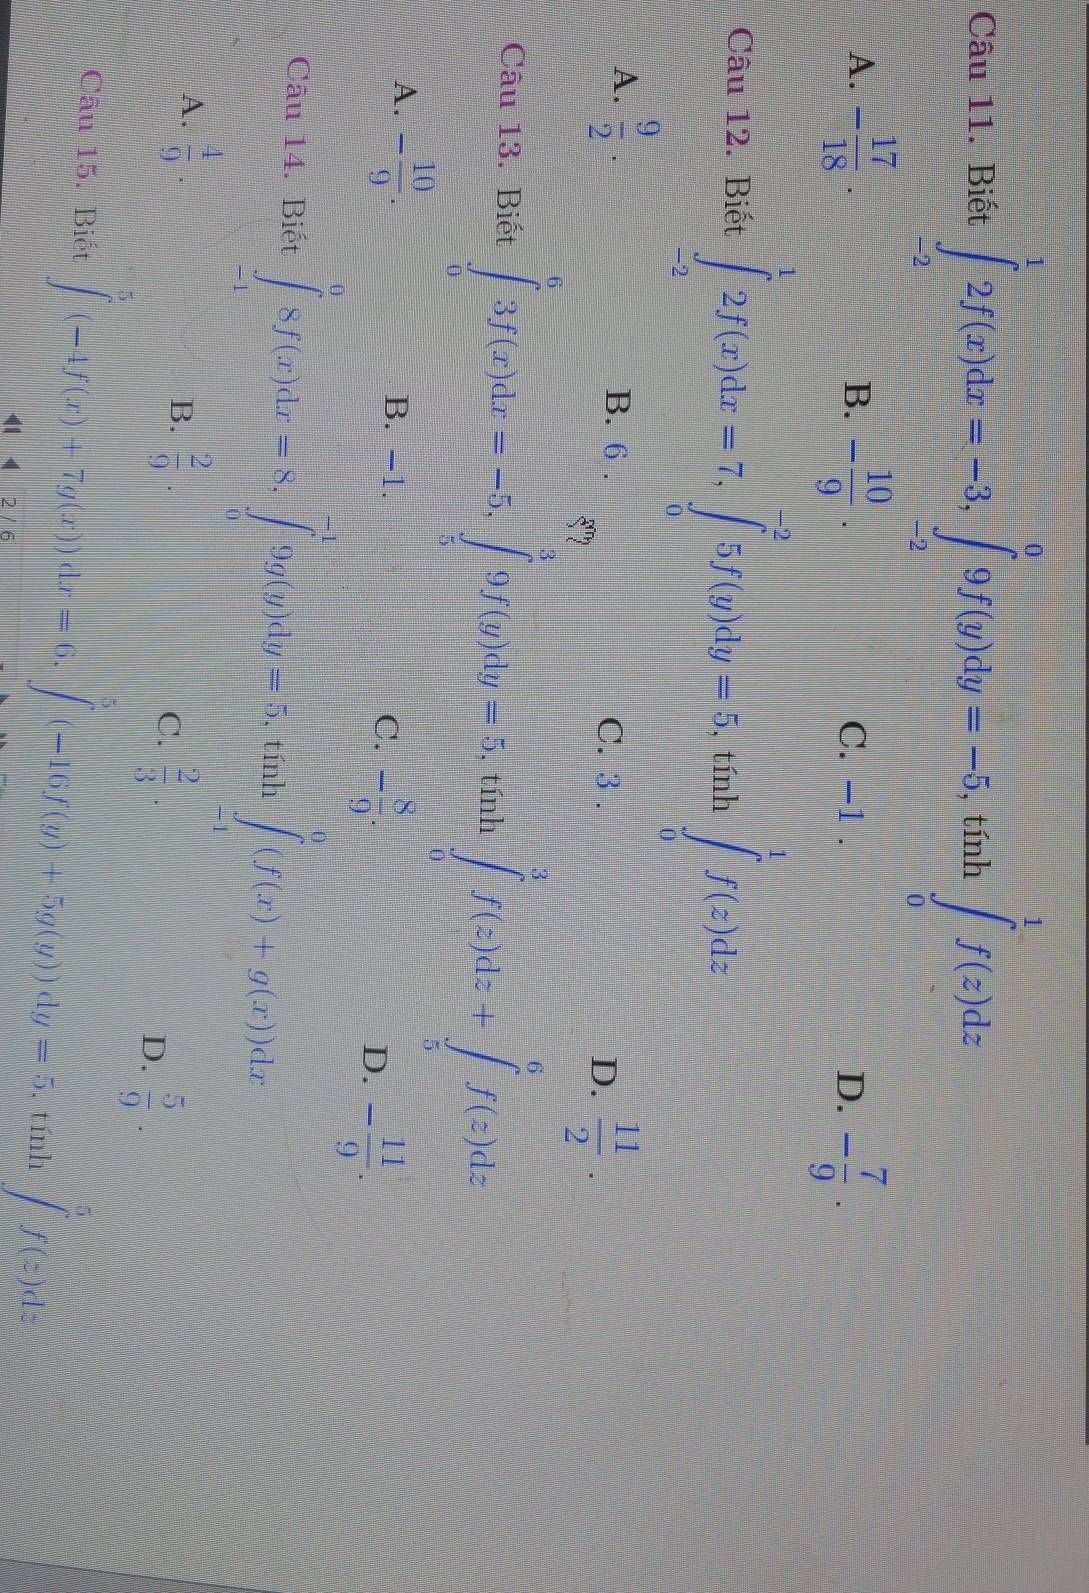 Câu 11. Biết ∫_{-2}^{1} 2f(x)dx = −3, ∫_{-2}^{0} 9f(y)dy = −5, tính ∫_{0}^{1} f(z)dz
A. −17/18 . B. −10/9 . C. −1 . D. −7/9 .
Câu 12. Biết ∫_{-2}^{1} 2f(x)dx = 7, ∫_{0}^{-2} 5f(y)dy = 5, tính ∫_{0}^{1} f(z)dz
A. 9/2 . B. 6 . C. 3 . D. 11/2 .
Câu 13. Biết ∫_{0}^{6} 3f(x)dx = −5, ∫_{5}^{3} 9f(y)dy = 5, tính ∫_{0}^{3} f(z)dz + ∫_{5}^{6} f(z)dz
A. −10/9 . B. −1. C. −8/9 . D. −11/9 .
Câu 14. Biết ∫_{-1}^{0} 8f(x)dx = 8, ∫_{0}^{-1} 9g(y)dy = 5, tính ∫_{-1}^{0} (f(x) + g(x))dx
A. 4/9 . B. 2/9 . C. 2/3 . D. 5/9 .
Câu 15. Biết ∫^{5} (−4f(x) + 7g(x)) dx = 6, ∫^{5} (−16f(y) + 5g(y)) dy = 5, tính ∫^{5} f(z)dz
2 / 6